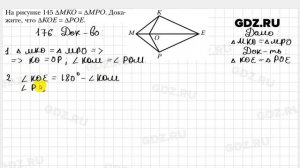 На рисунке 145 ΔMKO = ΔMPO. Дока-
жите, что ∠KOE = ∠POE.
GDZ.RU
176. Док-во
K
M
O
E
P
Дано
Δ MKO = Δ MPO
Док-ть
∠ KOE = ∠ POE
1. Δ MKO = Δ MPO =>
=> KO = OP, ∠KOM = ∠POM
2. ∠ KOE = 180° - ∠ KOM
∠ P
GDZ.RU